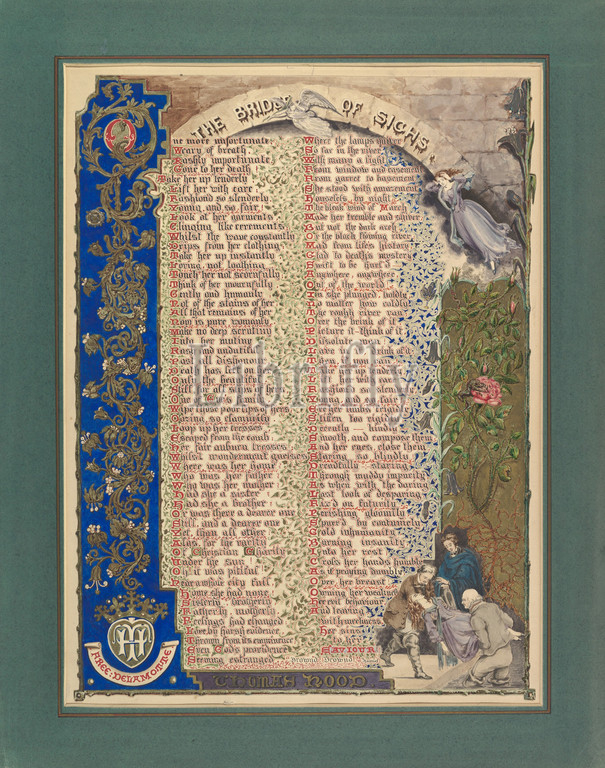 THE BRIDGE OF SIGHS
One more unfortunate
Weary of breath
Rashly importunate
Gone to her death
Take her up tenderly
Lift her with care
Fashiond so slenderly
Young and so fair
Look at her garments
Clinging like cerements
Whilst the wave constantly
Drips from her clothing
Take her up instantly
Loving, not loathing
Touch her not scornfully
Think of her mournfully
Gently and humanly
Not of the stains of her
All that remains of her
Now is pure womanly
Make no deep scrutiny
Into her mutiny
Rash and undutiful
Past all dishonour
Death has left on her
Still for all slips of hers
Wipe those poor lips of hers
Oozing so clammily
Loop up her tresses
Escaped from the comb
Her fair auburn tresses
Whilst wonderment guesses
Where was her home
Who was her father
Who was her mother
Had she a sister
Had she a brother
Or was there a dearer one
Still, and a dearer one
Yet, than all other
Alas, for the rarity
Of Christian Charity
Under the sun
Oh it was pitiful
Near a whole city full
Home she had none
Sisterly, brotherly
Fatherly, motherly
Feelings had changed
Love by harsh evidence
Thrown from its eminence
Even Gods providence
Seeming estranged
Where the lamps quiver
So far in the river
With many a light
From window and casement
From garret to basement
She stood with amazement
Houseless by night
The bleak wind of March
Made her tremble and shiver
But not the dark arch
Or the black flowing river
Mad from life's history
Glad to death's mystery
Swift to be hurl'd
Anywhere, anywhere
Out of the world
In she plunged, boldly
No matter how coldly
The rough river ran
Over the brink of it
Picture it think of it
Dissolute
Lave in it drink of it
Then, if you can
Take her up
Decently — kindly
Smooth, and compose them
And her eyes, close them
Staring so blindly
Dreadfully staring
Through muddy impurity
As when with the daring
Last look of despairing
Fix'd on futurity
Perishing gloomily
Spurr'd by contumely
Cold inhumanity
Burning insanity
Into her rest
Cross her hands humbly
As if praying dumbly
Over her breast
Owning her weakness
Her evil behaviour
And leaving
With meekness
Her sins
to her
SAVIOUR
Drown'd Drown'd
THOMAS HOOD
FREE: DELAMOTTE
Librifly